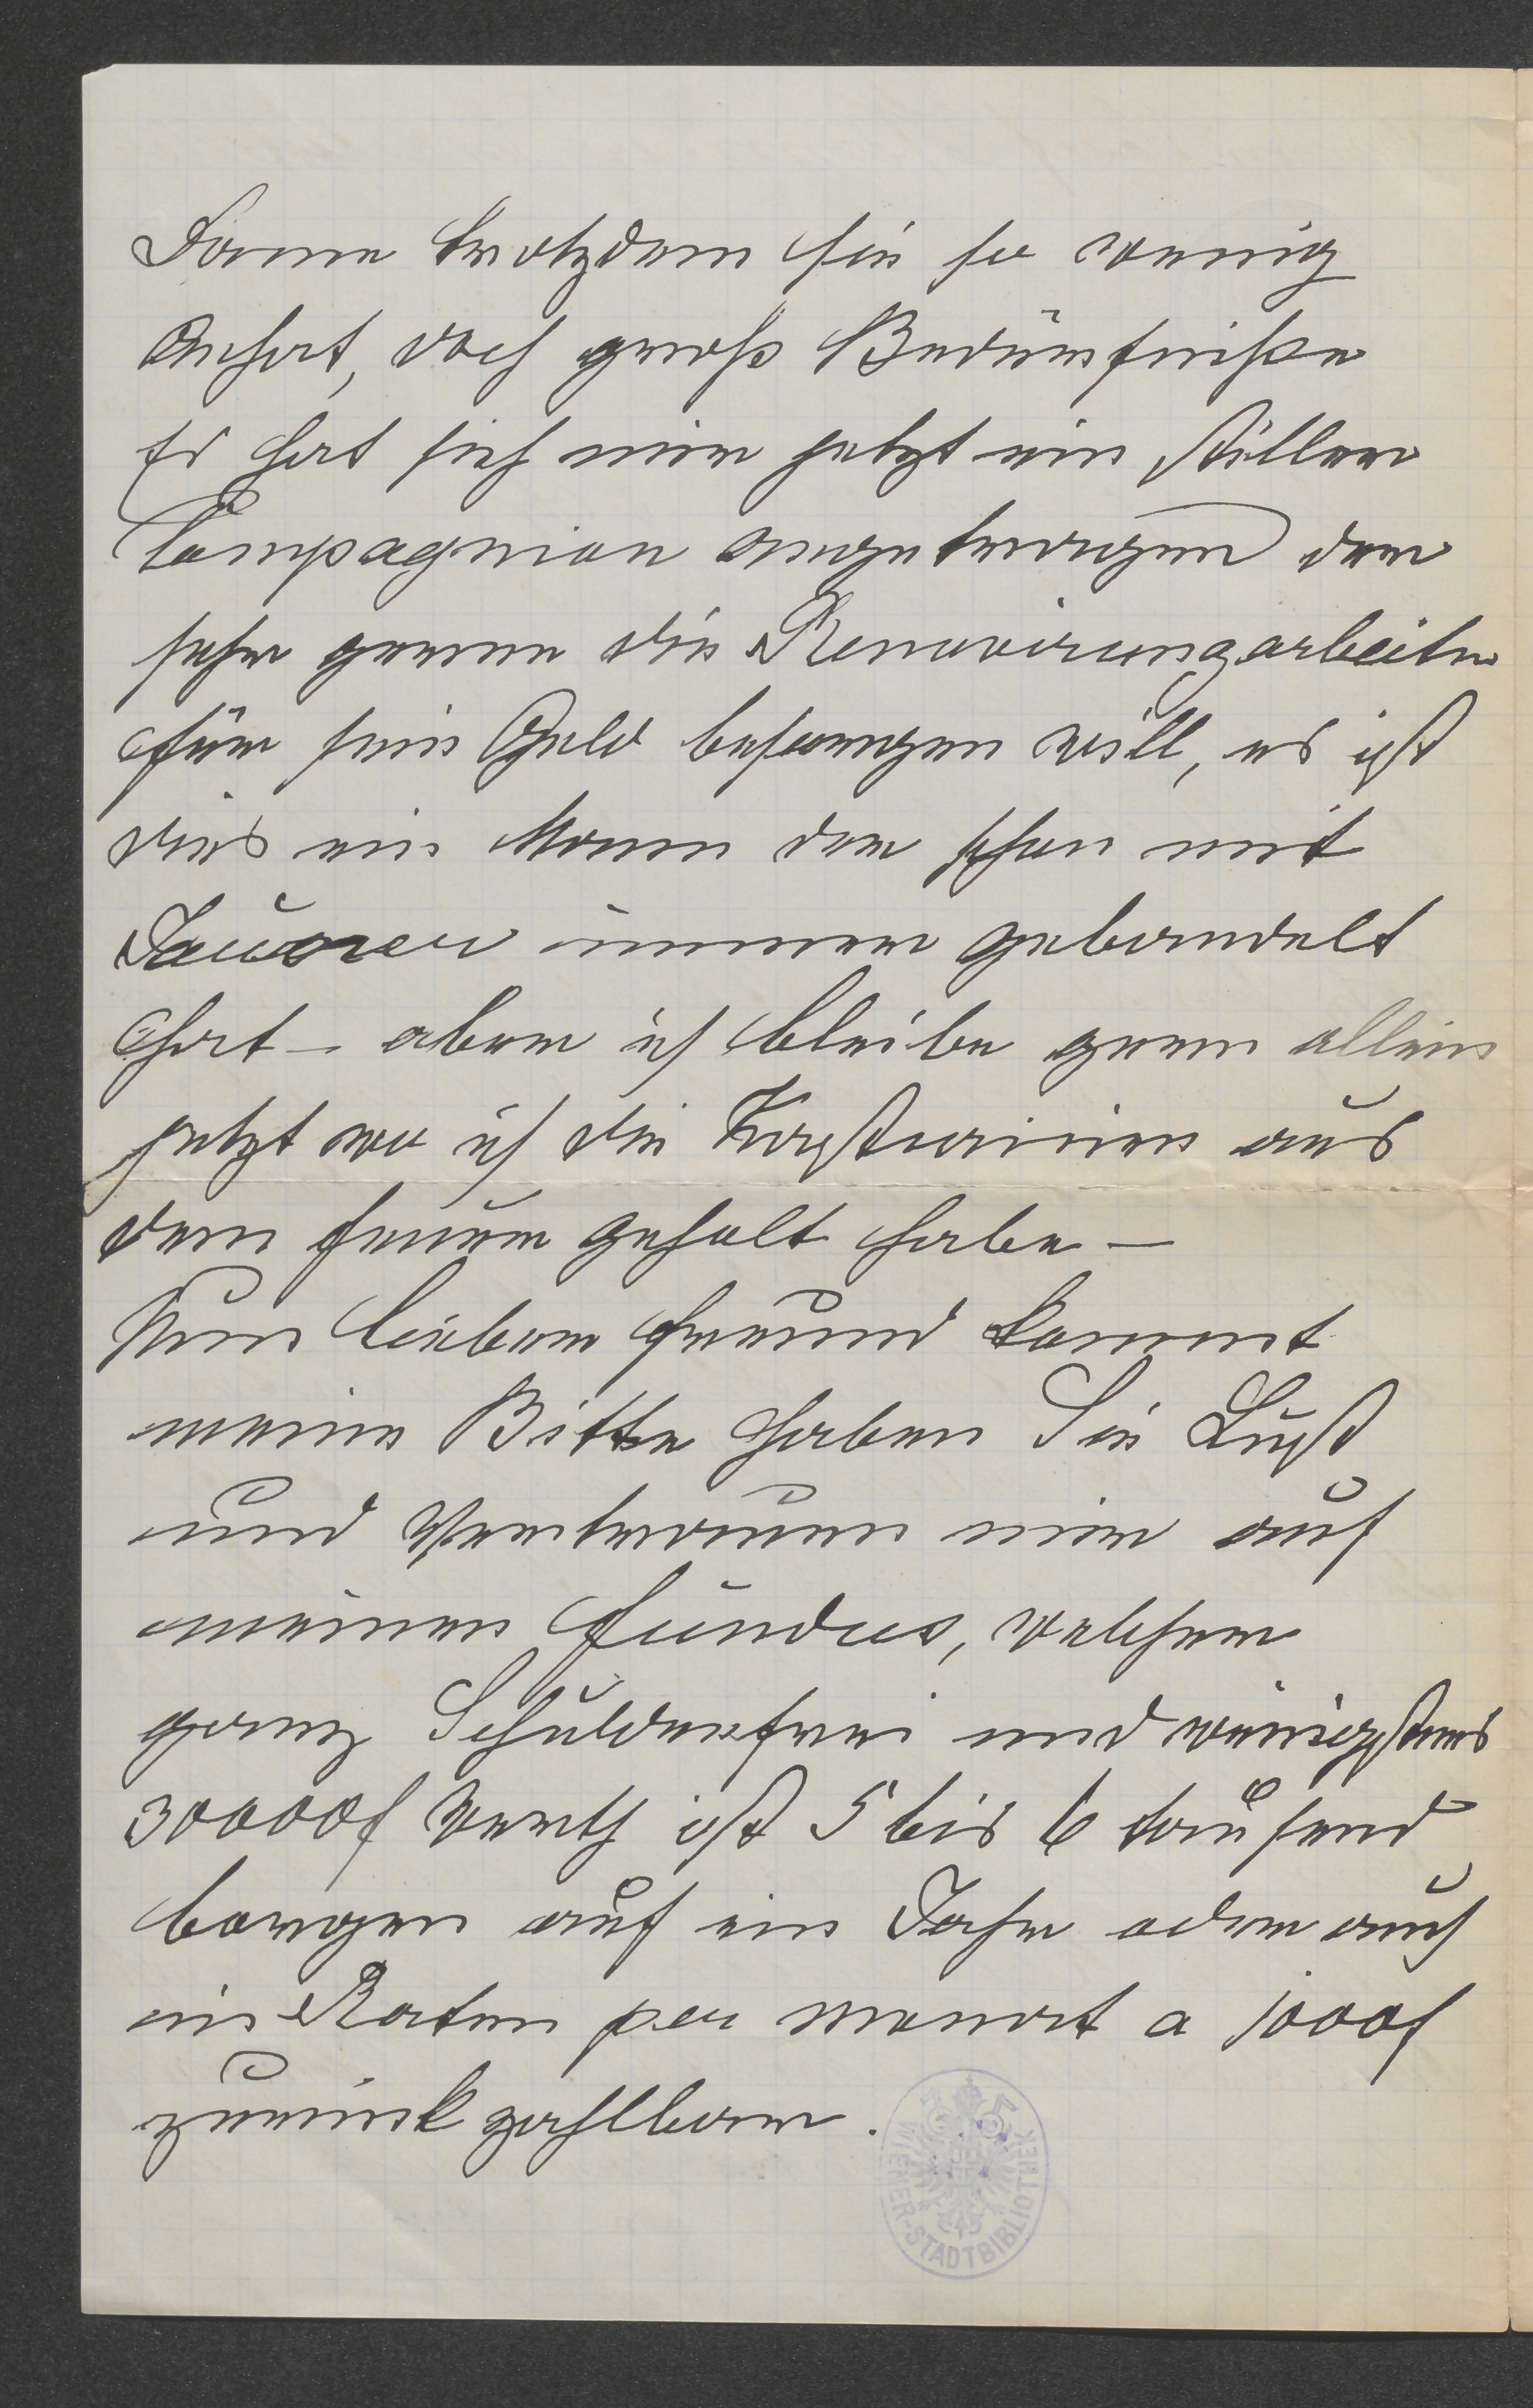 Dame trotzdem sie so wenig
Anhat, doch groß Bedürfniße
Es hat sich mir jetzt ein stiller
Compagnion angetragen der
sehr gerne die Renovirungarbeiten
für sein Geld besorgen will, es ist
dies ein Mann der schon mit
Jauner immer gebandelt
hat – aber ich bleibe gern allein
jetzt wo ich die Kastanien aus
dem Feuer geholt habe –
Nun lieber Freund kommt
meine Bitte haben Sie Lust
und Vertrauen mir auf
meinen Fundus, welcher
ganz Schuldenfrei und wenigstens
30000f Werth ist 5 bis 6 tausend
borgen auf ein Jahr oder auch
in Raten per Monat a 1000f
zurück zahlbar.
WIENER-STADTBIBLIOTHEK